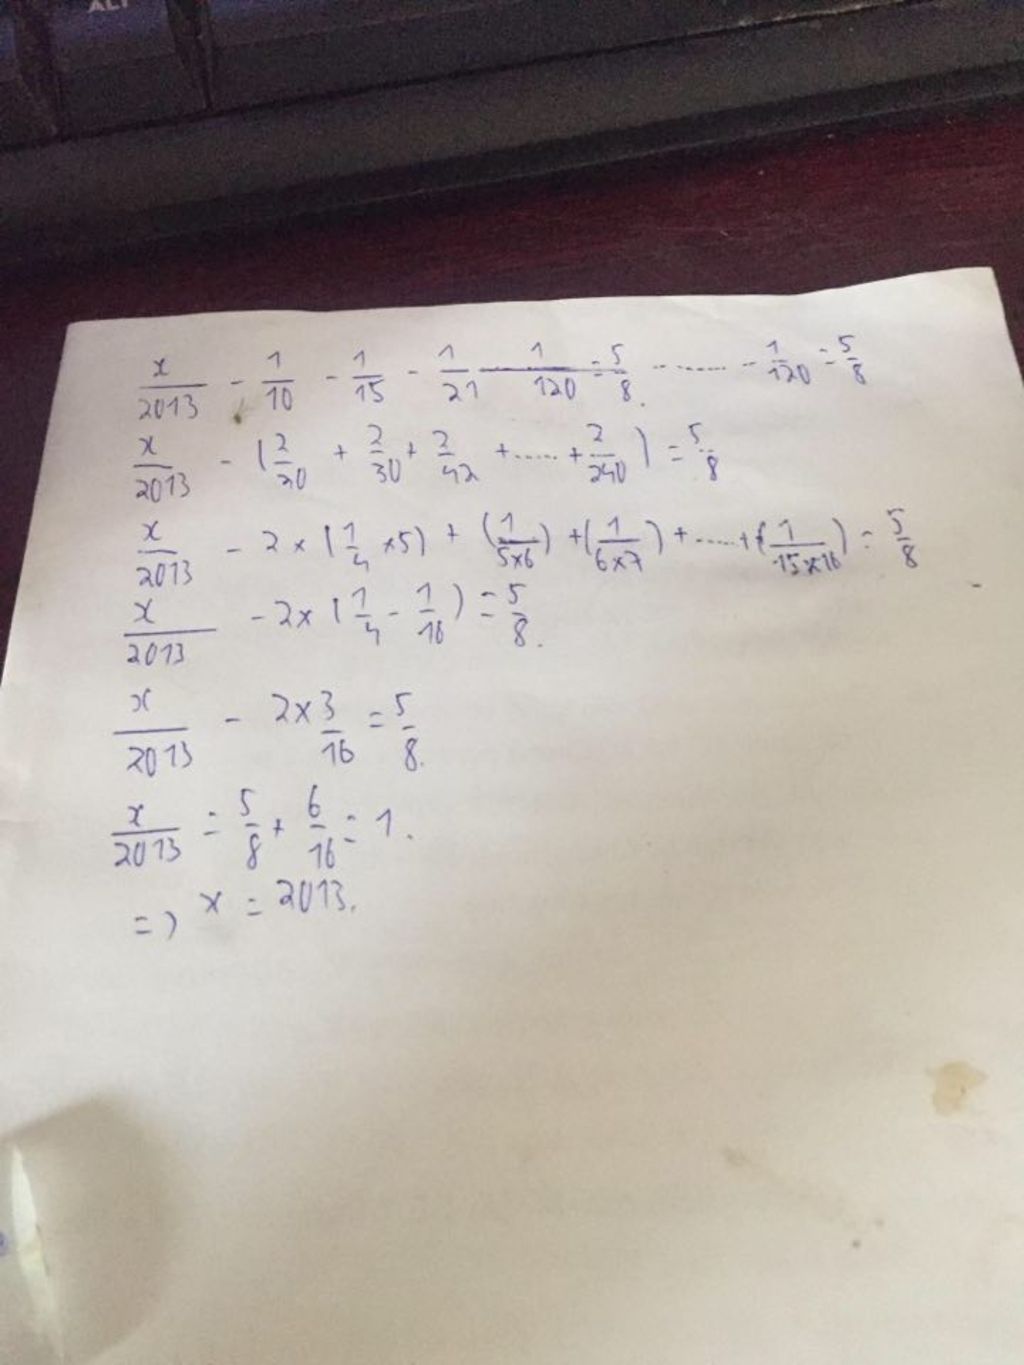 ALT
x/2013 - 1/10 - 1/15 - 1/21 1/120 = 5/8. ....... - 1/120 = 5/8
x/2013 - (2/20 + 2/30 + 2/42 + ..... + 2/240) = 5/8
x/2013 - 2 × (1/4 × 5) + (1/5×6) + (1/6×7) + ..... + (1/15×16) = 5/8
x/2013 - 2 × (1/4 - 1/16) = 5/8.
x/2013 - 2 × 3/16 = 5/8.
x/2013 = 5/8 + 6/16 = 1.
=> x = 2013.